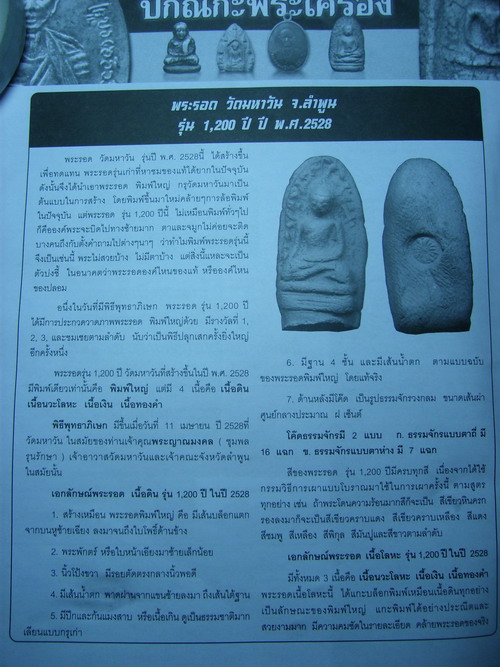 ปกิณกะพระเครื่อง
พระรอด วัดมหาวัน จ.ลำพูน
รุ่น 1,200 ปี ปี พ.ศ.2528
พระรอด วัดมหาวัน รุ่นปี พ.ศ. 2528นี้ ได้สร้างขึ้น
เพื่อทดแทน พระรอดรุ่นเก่าที่หาชมของแท้ได้ยากในปัจจุบัน
ดังนั้นจึงได้นำเอาพระรอด พิมพ์ใหญ่ กรุวัดมหาวันมาเป็น
ต้นแบบในการสร้าง โดยพิมพ์ขึ้นมาใหม่คล้ายๆการล้อพิมพ์
ในปัจจุบัน แต่พระรอด รุ่น 1,200 ปีนี้ ไม่เหมือนพิมพ์ทั่วๆไป
ก็คือองค์พระจะบิดไปทางซ้ายมาก ตาและจมูกไม่ค่อยจะติด
บางคนถึงกับตั้งคำถามไปต่างๆนาๆ ว่าทำไมพิมพ์พระรอดรุ่นนี้
จึงเป็นเช่นนี้ พระไม่สวยบ้าง ไม่มีตาบ้าง แต่สิ่งนี้แหละจะเป็น
ตัวบ่งชี้ ในอนาคตว่าพระรอดองค์ไหนของแท้ หรือองค์ไหน
ของปลอม
อนึ่งในวันที่มีพิธีพุทธาภิเษก พระรอด รุ่น 1,200 ปี
ได้มีการประกวดวาดภาพพระรอด พิมพ์ใหญ่ด้วย มีรางวัลที่ 1,
2, 3, และชมเชยตามลำดับ นับว่าเป็นพิธีปลุกเสกครั้งยิ่งใหญ่
อีกครั้งหนึ่ง
พระรอดรุ่น 1,200 ปี วัดมหาวันที่สร้างขึ้นในปี พ.ศ. 2528
มีพิมพ์เดียวเท่านั้นคือ พิมพ์ใหญ่ แต่มี 4 เนื้อคือ เนื้อดิน
เนื้อนวะโลหะ เนื้อเงิน เนื้อทองคำ
พิธีพุทธาภิเษก มีขึ้นเมื่อวันที่ 11 เมษายน ปี 2528ที่
วัดมหาวัน ในสมัยของท่านเจ้าคุณพระญาณมงคล ( ชุมพล
รุนรักษา ) เจ้าอาวาสวัดมหาวันและเจ้าคณะจังหวัดลำพูน
ในสมัยนั้น
เอกลักษณ์พระรอด เนื้อดิน รุ่น 1,200 ปี ในปี 2528
1. สร้างเหมือน พระรอดพิมพ์ใหญ่ คือ มีเส้นบล็อกแตก
จากบนหูซ้ายเฉียง ลงมาจนถึงใบโพธิ์ด้านข้าง
2. พระพักตร์ หรือใบหน้าเอียงมาซ้ายเล็กน้อย
3. นิ้วโป้งขวา มีรอยตัดตรงกลางนิ้วพอดี
4. มีเส้นน้ำตก พาดผ่านจากแขนซ้ายลงมา ถึงเส้นใต้ฐาน
5. มีปีกและก้นแมงสาบ หรือเนื้อเกิน ดูเป็นธรรมชาติมาก
เลียนแบบกรุเก่า
6. มีฐาน 4 ชั้น และมีเส้นน้ำตก ตามแบบฉบับ
ของพระรอดพิมพ์ใหญ่ โดยแท้จริง
7. ด้านหลังมีโค๊ต เป็นรูปธรรมจักรวงกลม ขนาดเส้นผ่า
ศูนย์กลางประมาณ ฝ เซ็นต์
โค๊ตธรรมจักรมี 2 แบบ ก. ธรรมจักรแบบตาถี่ มี
16 แฉก ข. ธรรมจักรแบบตาห่าง มี 7 แฉก
สีของพระรอด รุ่น 1,200 ปีมีครบทุกสี เนื่องจากได้ใช้
กรรมวิธีการเผาแบบโบราณมาใช้ในการเผาครั้งนี้ ตามสูตร
ทุกอย่าง เช่น ถ้าพระโดนความร้อนมากสีก็จะเป็น สีเขียวหินครก
รองลงมาก็จะเป็นสีเขียวคราบแดง สีเขียวคราบเหลือง สีแดง
สีชมพู สีเหลือง สีพิกุล สีมันปูและสีขาวตามลำดับ
เอกลักษณ์พระรอด เนื้อโลหะ รุ่น 1,200 ปีในปี 2528
มีทั้งหมด 3 เนื้อคือ เนื้อนวะโลหะ เนื้อเงิน เนื้อทองคำ
พระรอดเนื้อโลหะนี้ ได้แกะบล็อกพิมพ์เหมือนเนื้อดินทุกอย่าง
เป็นลักษณะของพิมพ์ใหญ่ แกะพิมพ์ได้อย่างประณีตและ
สวยงามมาก มีความคมชัดในรายละเอียด คล้ายพระรอดของจริง